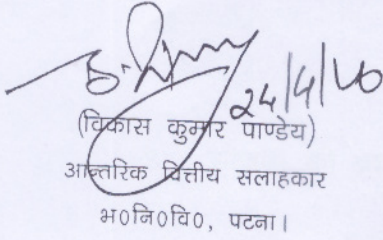 24/4/20
(विकास कुमार पाण्डेय)
आन्तरिक वित्तीय सलाहकार
भ०नि०वि०, पटना।